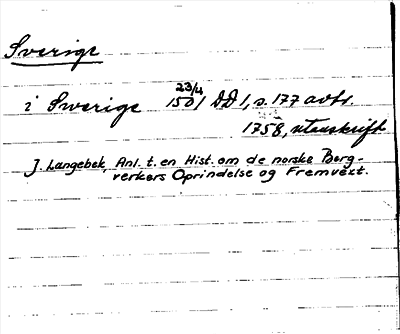 Sverige
i Swerige 23/4 1501 DD1, s. 177 avtr.
1758, utanskrift
J. Langebek, Anl. t. en Hist. om de norske Berg-
verkers Oprindelse og Fremvext.